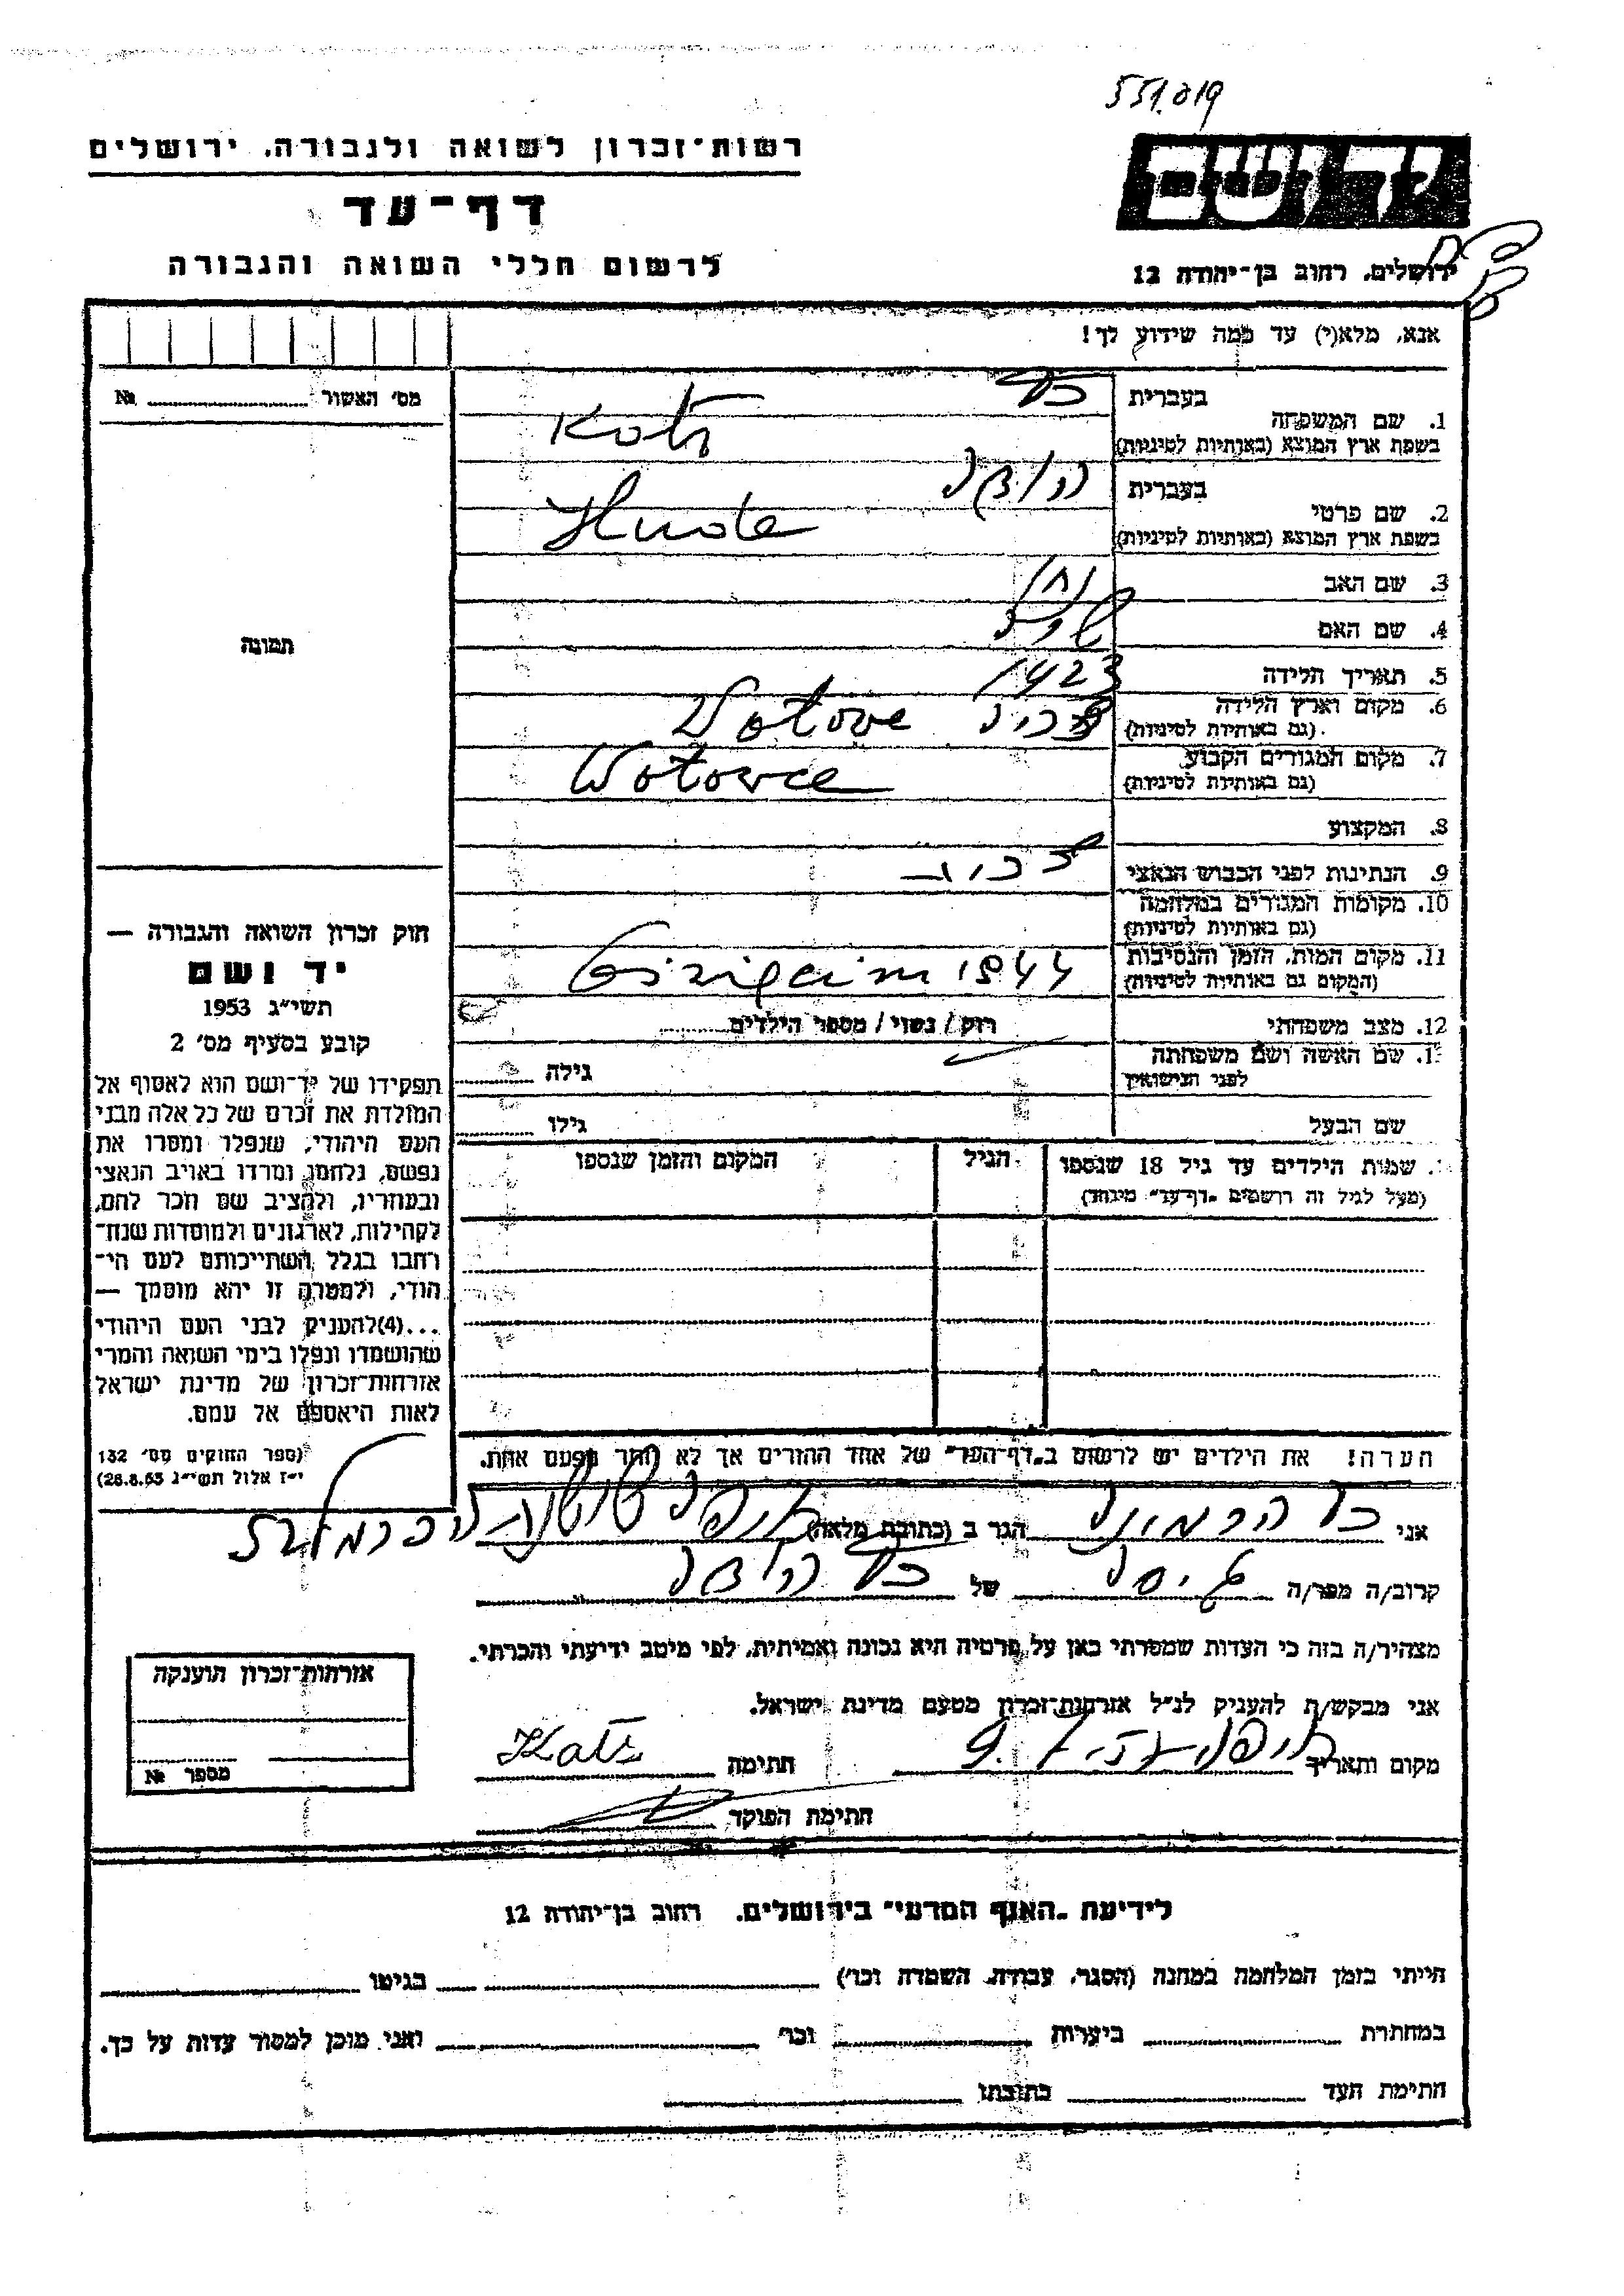 551.019
רשות־זכרון לשואה ולגבורה, ירושלים
דף־עד
לרשום חללי השואה והגבורה
יד ושם
ירושלים, רחוב בן־יהודה 12
אנא, מלא(י) עד כמה שידוע לך!
מס׳ האשור № 
1. שם המשפחה בעברית כץ
בשפת ארץ המוצא (באותיות לטיניות) Katz
2. שם פרטי בעברית
בשפת ארץ המוצא (באותיות לטיניות)
3. שם האב
4. שם האם
5. תאריך הלידה 1923
6. מקום וארץ הלידה
(גם באותיות לטיניות)
7. מקום המגורים הקבוע
(גם באותיות לטיניות)
8. המקצוע
9. הנתינות לפני הכבוש הנאצי
10. מקומות המגורים במלחמה
(גם באותיות לטיניות)
11. מקום המות, הזמן והנסיבות 1944
(המקום גם באותיות לטיניות)
12. מצב משפחתי רוק / נשוי / מספר הילדים
שם האשה ושם משפחתה גילה
לפני הנישואין
שם הבעל גילו
שמות הילדים עד גיל 18 שנספו הגיל המקום והזמן שנספו
(מעל לגיל זה רושמים „דף־עד״ מיוחד)
תמונה
חוק זכרון השואה והגבורה —
יד ושם
תשי״ג 1953
קובע בסעיף מס׳ 2
תפקידו של יד־ושם הוא לאסוף אל
המולדת את זכרם של כל אלה מבני
העם היהודי, שנפלו ומסרו את
נפשם, נלחמו ומרדו באויב הנאצי
ובעוזריו, ולהציב שם וזכר להם,
לקהילות, לארגונים ולמוסדות שנח־
רבו בגלל השתייכותם לעם הי־
הודי, ולמטרה זו יהא מוסמך —
...(4)להעניק לבני העם היהודי
שהושמדו ונפלו בימי השואה והמרי
אזרחות־זכרון של מדינת ישראל
לאות היאספם אל עמם.
(ספר החוקים מס׳ 132
י״ז אלול תשי״ג 28.8.53)
הערה! את הילדים יש לרשום ב„דף־העד״ של אחד ההורים אך לא יותר מפעם אחת.
אני כץ הגר ב (כתובת מלאה)
קרוב/ה מפר/ה של כץ
מצהיר/ה בזה כי העדות שמסרתי כאן על פרטיה היא נכונה ואמיתית, לפי מיטב ידיעתי והכרתי.
אני מבקש/ת להעניק לנ״ל אזרחות־זכרון מטעם מדינת ישראל.
מקום ותאריך חתימה Katz
חתימת הפוקד
אזרחות־זכרון הוענקה
מספר №
לידיעת „האגף המדעי״ בירושלים, רחוב בן־יהודה 12
הייתי בזמן המלחמה במחנה (הסגר, עבודה, השמדה וכו׳) בגיטו
במחתרת ביערות וכו׳ ואני מוכן למסור עדות על כך.
חתימת העד כתובתו